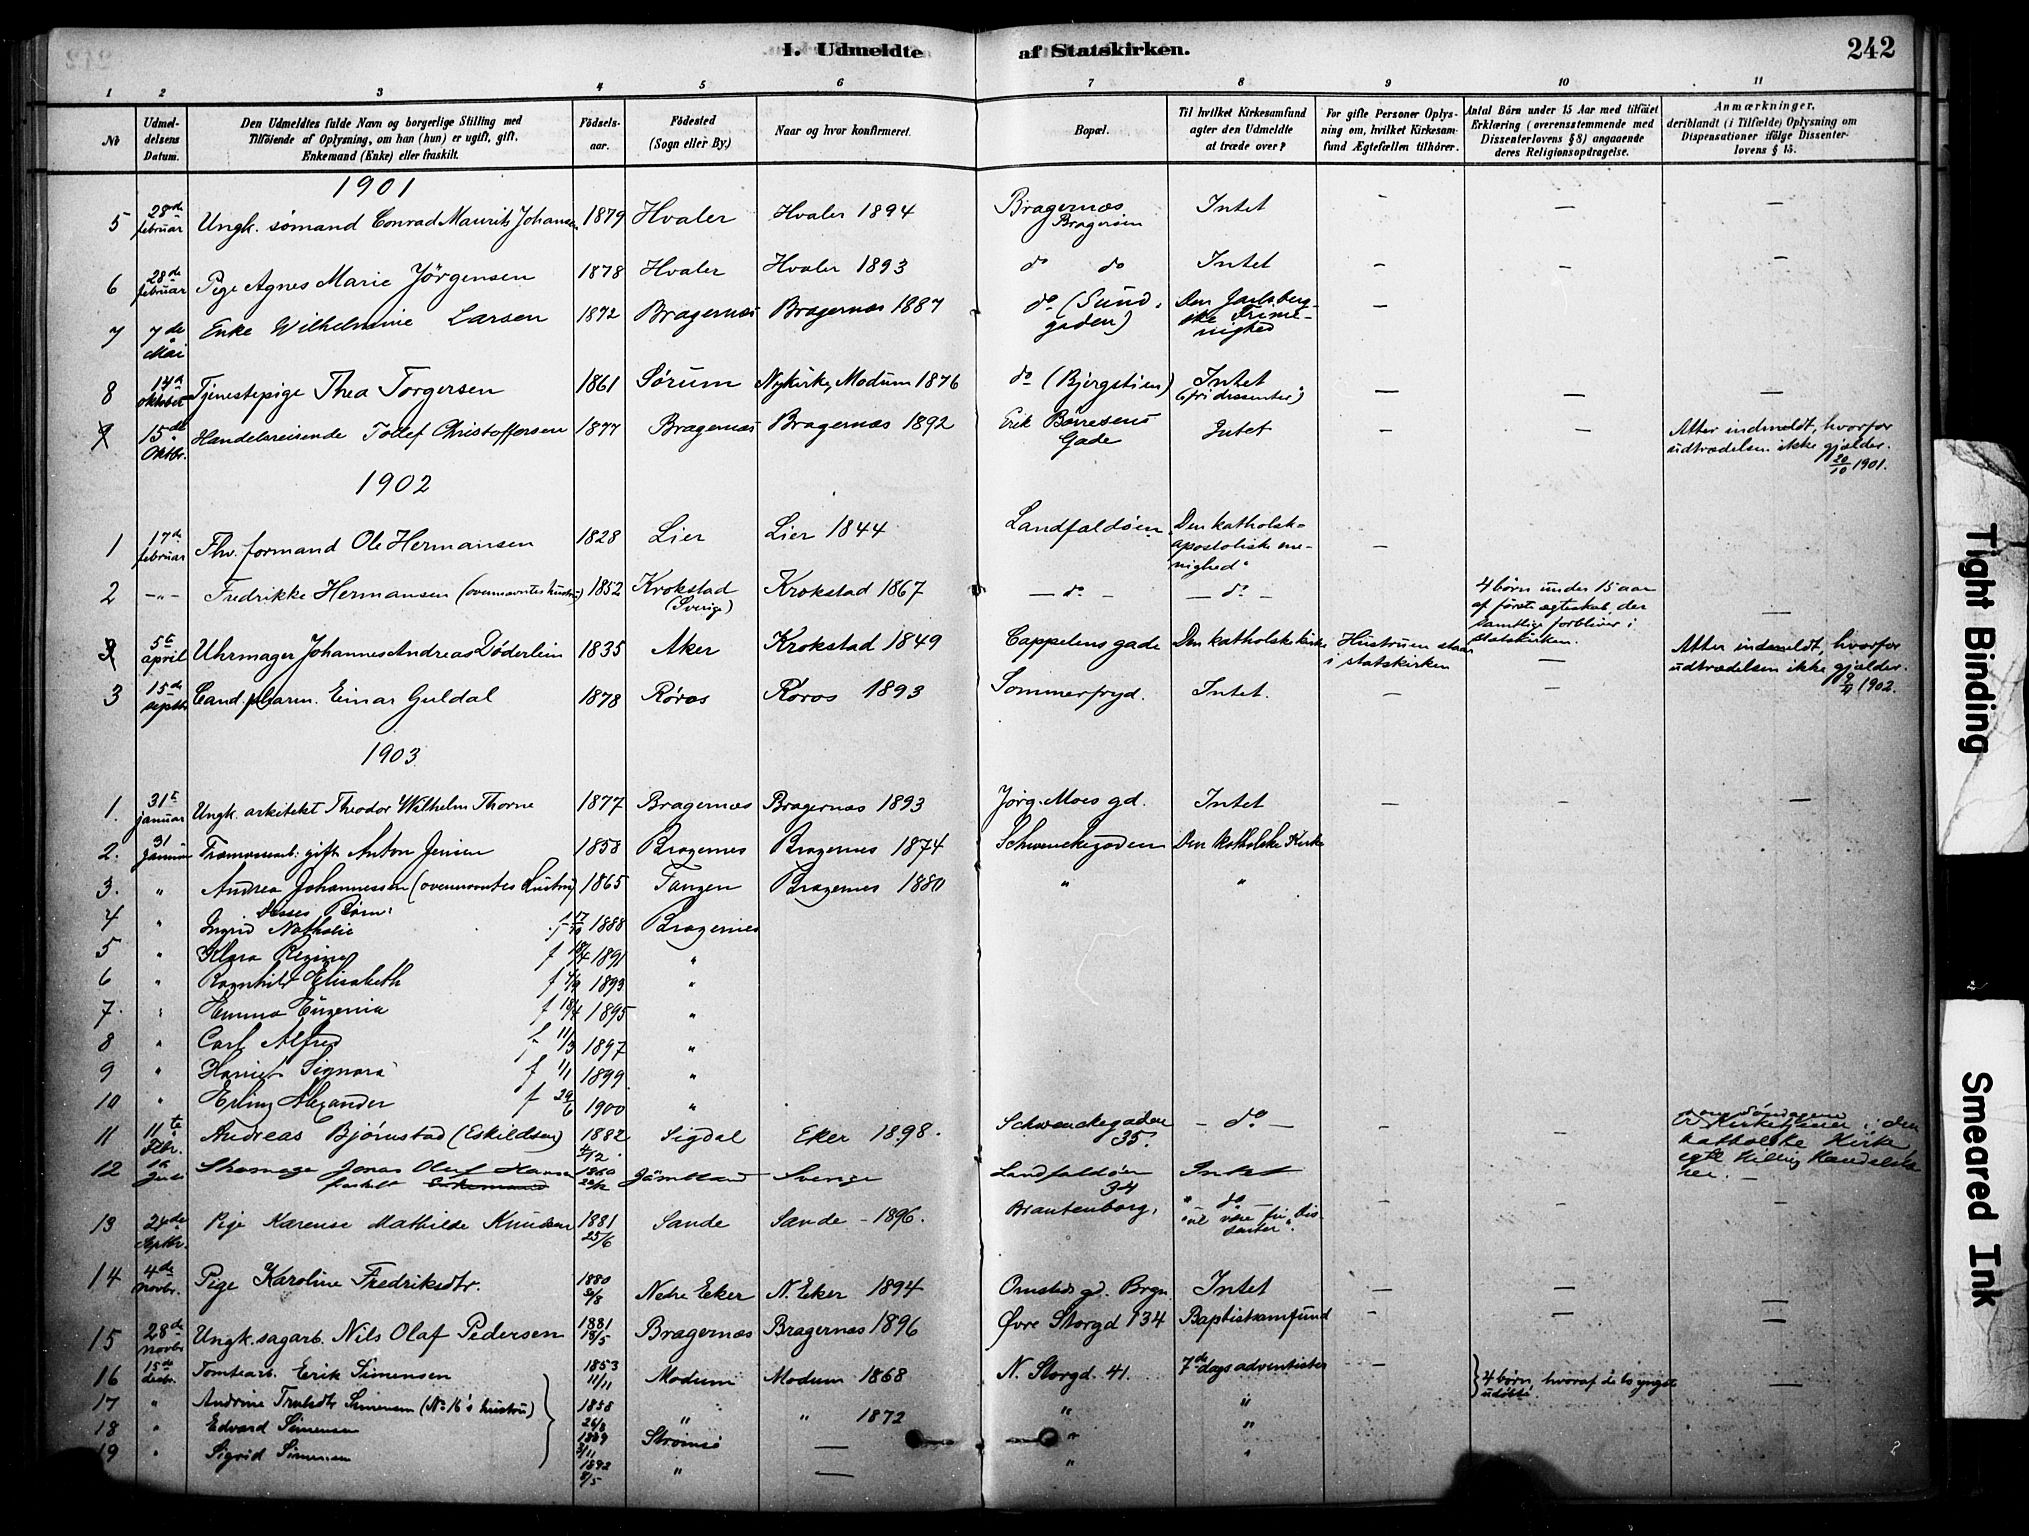 I. Udmeldte af Statskirken. 242
1 2 3 4 5 6 7 8 9 10 11
No
Udmeldelsens Datum.
Den Udmeldtes fulde Navn og borgerlige Stilling med Tilføiende af Oplysning, om han (hun) er ugift, gift, Enkemand (Enke) eller fraskilt.
Fødselsaar.
Fødested (Sogn eller By.)
Naar og hvor konfirmeret.
Bopæl.
Til hvilket Kirkesamfund agter den Udmeldte at træde over?
For gifte Personer Oplysning om, hvilket Kirkesamfund Ægtefællen tilhører.
Antal Børn under 15 Aar med tilføiet Erklæring (overensstemmende med Dissenterlovens § 8) angaaende deres Religionsopdragelse.
Anmærkninger, deriblandt (i Tilfælde) Oplysning om Dispensationer ifølge Dissenterlovens § 15.
1901
5 28de februar Ungk. sømand Conrad Maurits Johansen 1879 Hvaler Hvaler 1894 Bragernæs Bragerøen Intet — — —
6 28de februar Pige Agnes Marie Jörgensen 1878 Hvaler Hvaler 1893 do do Intet — — —
7 7de Mai Enke Wilhelmine Larsen 1872 Bragernæs Bragernæs 1887 do (Sundgaden) Den Jarlsbergske Frimenighed —
8 14de oktober Tjenestepige Thea Torgersen 1861 Sørum Nykirke, Modum 1876 do (Bjergstien) Intet (fri dissenter) — — —
9 15de Oktbr. Handelsreisende Todlef Christoffersen 1877 Bragernæs Bragernæs 1892 Erik Børresens Gade Intet — — Atter indmeldt, hvorfor udtrædelsen ikke gjælder. 20/10 1901.
1902
1 17de februar Fhv. formand Ole Hermansen 1828 Lier Lier 1844 Landfaldøen Den katholsk-apostoliske menighed —
2 —"— Fredrikke Hermansen (ovennævntes hustru) 1852 Krokstad (Sverige) Krokstad 1867 — do — — do — 4 børn under 15 aar af første ægteskab, der samtlige forbliver i statskirken. —
3 5te april Uhrmager Johannes Andreas Døderlein 1835 Aker Krokstad 1849 Cappelens gade Den katholske kirke Hustruen staar i statskirken — Atter indmeldt, hvorfor udtrædelsen ikke gjælder. 1902.
3 15de septbr Cand. pharm. Einar Guldal 1878 Røros Røros 1893 Sommerfryd. Intet. — —
1903
1. 31te januar Ungk. arkitekt Theodor Wilhelm Thorne 1877 Bragernæs Bragernæs 1893 Jørg. Moes gd. Intet — — —
2. 31 Januar gift Anton Jensen 1858 Bragernes Bragernes 1874 Schwenckegaden Den katholske Kirke
3. " Andrea Johannessen (ovennævntes Hustru) 1865 Tangen Bragernes 1880 " "
Disses Børn:
4 " Ingrid Nathalie f 17/10 1888 Bragernes
5 " Klara Regine f 18/4 1891 "
6 " Ragnhild Elisabeth f 1893 "
7. " Emma Eugenia f 18/4 1895 "
8 " Carl Alfred f 11/3 1897 "
9 " Harriet Signora f 1/1 1899 "
10 " Erling Alexander f 29/6 1900 "
11 11te Febr. Andreas Bjørnstad (Eskildsen) 1882 Sigdal Eker 1898. Schwenckegaden 35. — do — — Kirketjener i den katholske Kirke
12 Skomager Jonas Oluf Hansen fraskilt 1860 Jämtland Sverige Landfaldøen 34 Intet
13 24de septbr. Pige Karense Mathilde Knudsen 1881 25/6 Sande Sande - 1896. Brantenborg. " do — vil være fri dissenter". — — —
14 4de novbr. Pige Karoline Fredriksdtr. 1880 Nedre Eker N. Eker 1894 Omsteds gd. Brgn Intet — — —
15 28de novbr Ungk. sagarb. Nils Olaf Pedersen 1881 18/5 Bragernæs Bragernæs 1896 Øvre Storgd 134 Baptistsamfund — — —
16 15de decbr. Tomtearb. Erik Simensen 1853 11/11 Modum Modum 1868 N. Storgd. 41. 7de dags adventister — 4 børn, hvoraf de to yngste udøbte. —
17 " Andrine Trulsdtr Simensen (No 16's hustru) 1858 26/8 " " 1872 " "
18 " Edvard Simensen 1889 3/11 Strømsø — " "
19 " Sigrid Simensen 1892 8/5 " — " "
Tight Binding
Smeared Ink